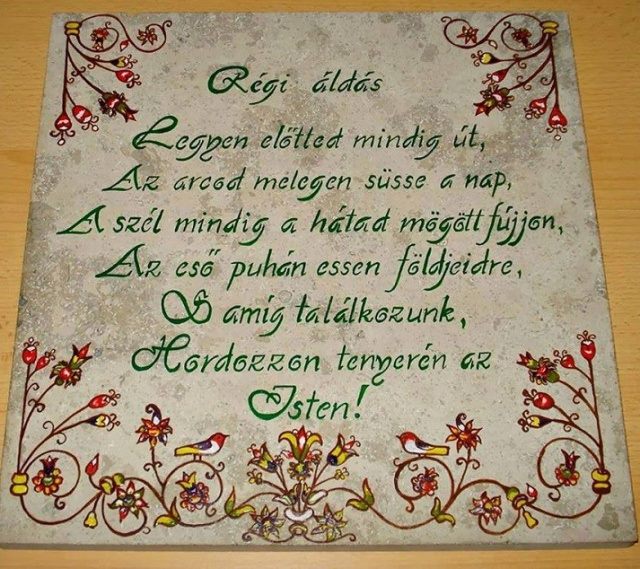 Régi áldás
Legyen előtted mindig út,
Az arcod melegen süsse a nap,
A szél mindig a hátad mögött fújjon,
Az eső puhán essen földjeidre,
S amíg találkozunk,
Hordozzon tenyerén az
Isten!